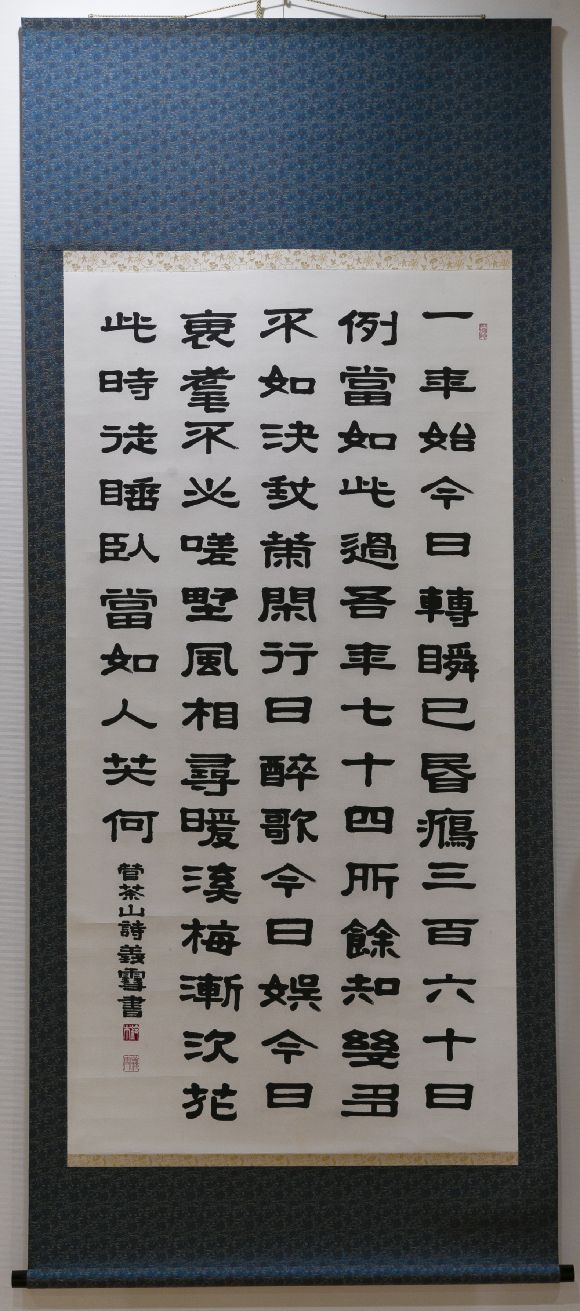 一年始今日轉瞬已昏鴉三百六十日
例當如此過吾年七十四所餘知幾多
不如決我策閑行日醉歌今日娛今日
衰耄不必嗟野風相尋暖溪梅漸次花
此時徒睡臥當如人笑何
菅茶山詩義雪書